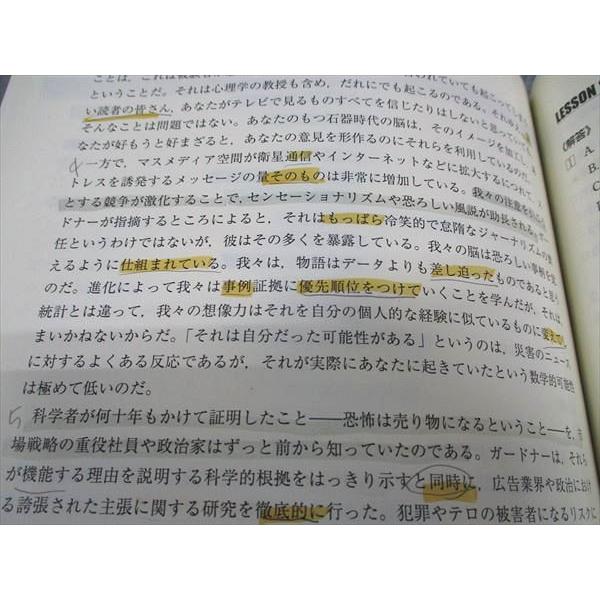 ということだ。それは心理学の教授も含め、だれにでも起こるのである。
い読者の皆さん、あなたがテレビで見るものすべてを信じたりはしないと思って
そんなことは問題ではない。あなたのもつ石器時代の脳は、そのイメージを
なたが好もうと好まざると、あなたの意見を形作るのにそれらを利用しているのだ。
4 一方で、マスメディア空間が衛星通信やインターネットなどに拡大するにつれて、ス
トレスを誘発するメッセージの量そのものは非常に増加している。我々の注意を
とする競争が激化することで、センセーショナリズムや恐ろしい風説が助長される
ドナーが指摘するところによると、それはもっぱら冷笑的で怠惰なジャーナリズムの
任というわけではないが、彼はその多くを暴露している。我々の脳は恐ろしい事柄を
えるように仕組まれている。我々は、物語はデータよりも差し迫ったものであると思う
のだ。進化によって我々は事例証拠に優先順位をつけていくことを学んだが、それは、
統計とは違って、我々の想像力はそれを自分の個人的な経験に似ているものに変えてし
まいかねないからだ。「それは自分だった可能性がある」というのは、災害のニュース
に対するよくある反応であるが、それが実際にあなたに起きていたという数学的可能性
は極めて低いのだ。
5 科学者が何十年もかけて証明したこと——恐怖は売り物になるということ——を、市
場戦略の重役社員や政治家はずっと前から知っていたのである。ガードナーは、それら
が機能する理由を説明する科学的根拠をはっきり示すと同時に、広告業界や政治におけ
る誇張された主張に関する研究を徹底的に行った。犯罪やテロの被害者になるリスクに
LESSON
《解答》
1 A.
B.